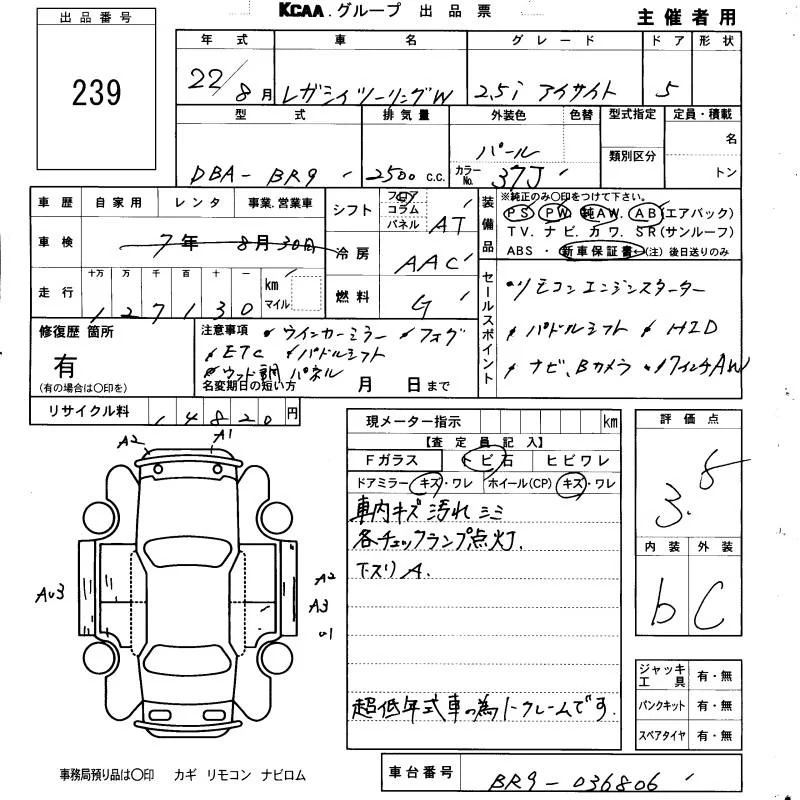 出品番号
239
KCAA.グループ 出品票
主催者用
年式 車名 グレード ドア 形状
22/8月 レガシィツーリングW 2.5i アイサイト 5
型式 排気量 外装色 色替 型式指定 定員・積載
類別区分 名
DBA-BR9 2500 c.c. パール カラーNo. 37J トン
車歴 自家用 レンタ 事業.営業車
シフト フロア コラム パネル AT
装備品 ※純正のみ○印をつけて下さい。
PS PW 純AW. AB(エアバック)
TV. ナビ. カワ. SR(サンルーフ)
ABS・新車保証書←(注)後日送りのみ
車検 7年 8月30日
冷房 AAC
走行 十万 万 千 百 十 一 km マイル
127130
燃料 G
セールスポイント
リモコンエンジンスターター
パドルシフト HID
ナビ、Bカメラ 17インチAW
修復歴 箇所
有
(有の場合は○印を)
注意事項 ウインカーミラー フォグ
ETC パドルシフト
ウッド調パネル
名変期日の短い方 月 日まで
リサイクル料 14820円
現メーター指示 km
【査定員記入】
Fガラス トビ石 ヒビワレ
ドアミラー キズ・ワレ ホイール(CP) キズ・ワレ
車内キズ汚れシミ
各チェックランプ点灯.
下スリA.
超低年式車の為ノークレームです.
評価点
3.5
内装 外装
b C
A2 A1
AU3
A2
A3
U1
ジャッキ工具 有・無
パンクキット 有・無
スペアタイヤ 有・無
事務局預り品は○印 カギ リモコン ナビロム
車台番号 BR9-036806